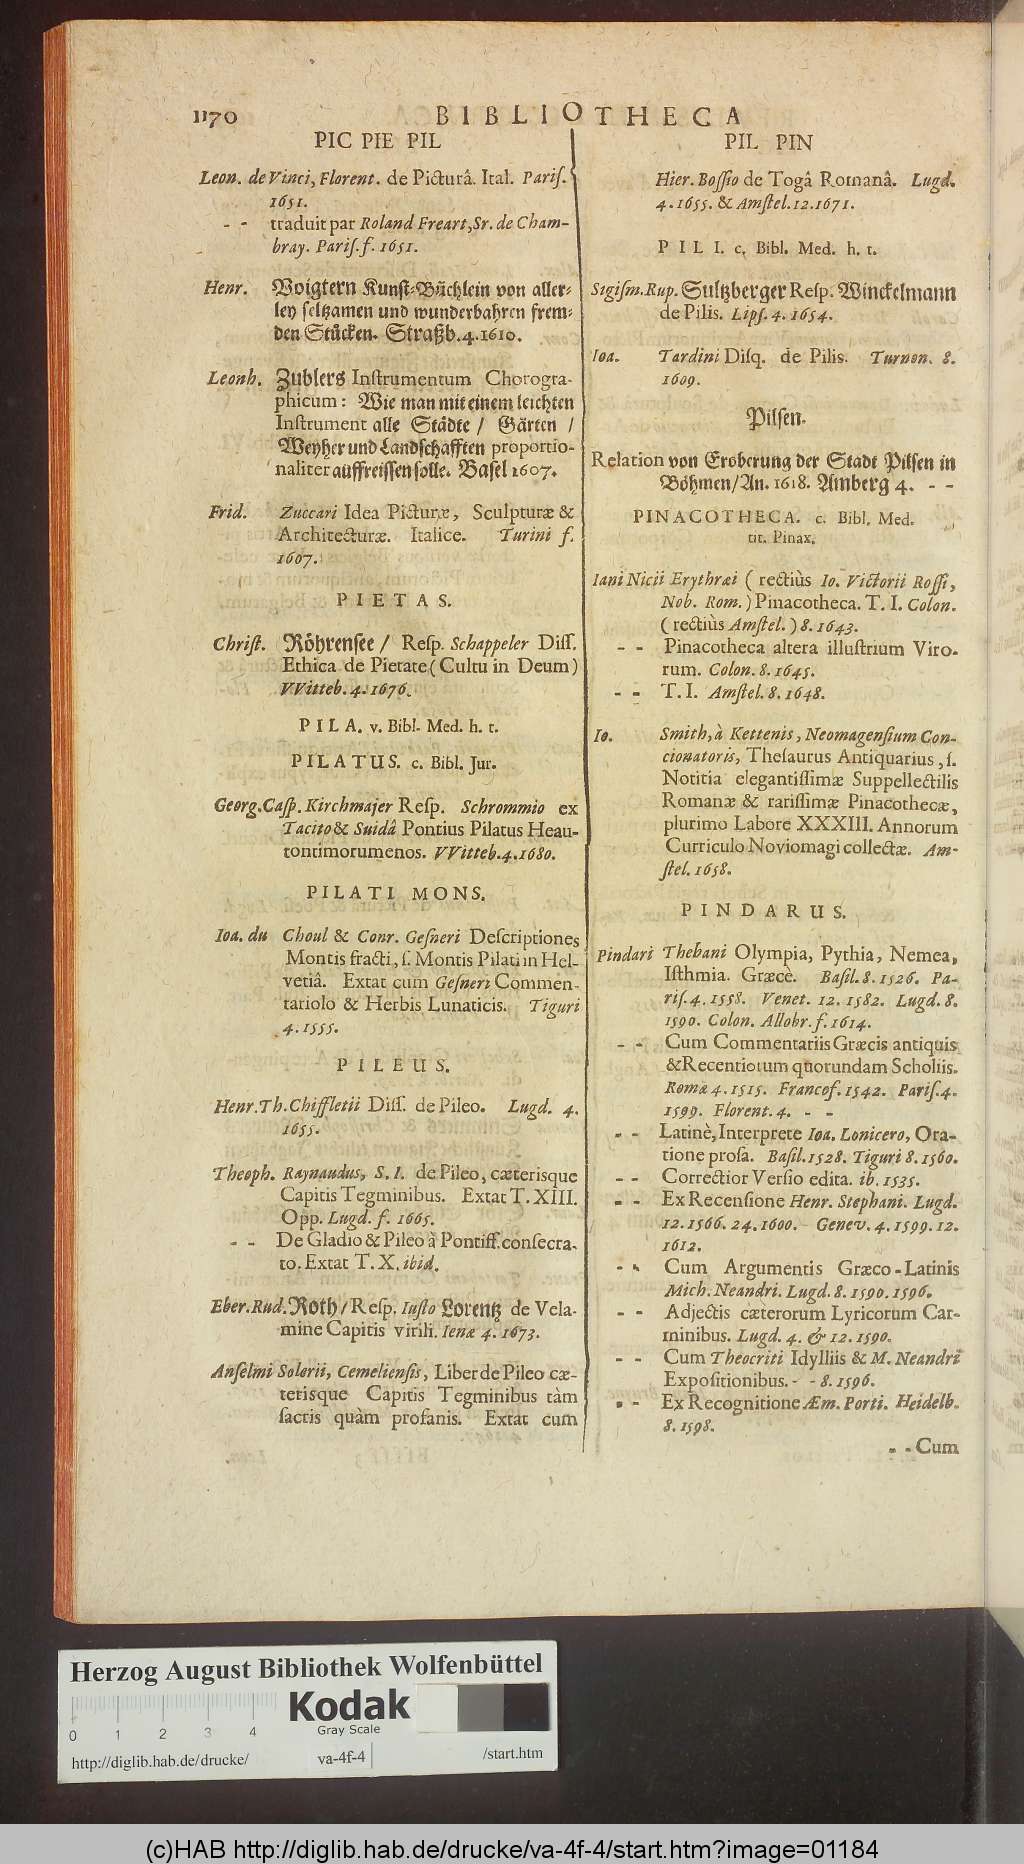 1170 BIBLIOTHECA
PIC PIE PIL
Leon. de Vinci, Florent. de Picturâ. Ital. Pariſ.
1651.
- - traduit par Roland Freart, Sr. de Cham-
bray. Pariſ. f. 1651.
Henr. Voigtern Kunſt-Büchlein von aller-
ley ſeltzamen und wunderbahren frem-
den Stücken. Straßb. 4. 1610.
Leonh. Zublers Inſtrumentum Chorogra-
phicum: Wie man mit einem leichten
Inſtrument alle Städte / Gärten /
Weyher und Landſchafften proportio-
naliter auffreiſſen ſolle. Baſel 1607.
Frid. Zuccari Idea Picturæ, Sculpturæ &
Architecturæ. Italice. Turini f.
1607.
PIETAS.
Chriſt. Röhrenſee / Reſp. Schappeler Diſſ.
Ethica de Pietate (Cultu in Deum)
VVitteb. 4. 1676.
PILA. v. Bibl. Med. h. t.
PILATUS. c. Bibl. Jur.
Georg. Caſp. Kirchmajer Reſp. Schrommio ex
Tacito & Suidâ Pontius Pilatus Heau-
tontimorumenos. VVitteb. 4. 1680.
PILATI MONS.
Ioa. du Choul & Conr. Geſneri Deſcriptiones
Montis fracti, ſ. Montis Pilati in Hel-
vetiâ. Extat cum Geſneri Commen-
tariolo & Herbis Lunaticis. Tiguri
4. 1555.
PILEUS.
Henr. Th. Chiffletii Diſſ. de Pileo. Lugd. 4.
1655.
Theoph. Raynaudus, S. I. de Pileo, cæterisque
Capitis Tegminibus. Extat T. XIII.
Opp. Lugd. f. 1665.
- - De Gladio & Pileo à Pontiff. conſecra-
to. Extat T. X. ibid.
Eber. Rud. Roth / Reſp. Iuſto Lorentz de Vela-
mine Capitis virili. Ienæ 4. 1673.
Anſelmi Solerii, Cemelienſis, Liber de Pileo cæ-
terisque Capitis Tegminibus tàm
ſacris quàm profanis. Extat cum
PIL PIN
Hier. Boſſio de Togâ Romanâ. Lugd.
4. 1655. & Amſtel. 12. 1671.
PILI. c. Bibl. Med. h. t.
Sigiſm. Rup. Sultzberger Reſp. Winckelmann
de Pilis. Lipſ. 4. 1654.
Ioa. Tardini Diſq. de Pilis. Turnon. 8.
1609.
Pilſen.
Relation von Eroberung der Stadt Pilſen in
Böhmen / An. 1618. Amberg 4. - -
PINACOTHECA. c. Bibl. Med.
tit. Pinax.
Iani Nicii Erythræi (rectiùs Io. Victorii Roſſi,
Nob. Rom.) Pinacotheca. T. I. Colon.
(rectiùs Amſtel.) 8. 1643.
- - Pinacotheca altera illuſtrium Viro-
rum. Colon. 8. 1645.
- - T. I. Amſtel. 8. 1648.
Io. Smith, à Kettenis, Neomagenſium Con-
cionatoris, Theſaurus Antiquarius, ſ.
Notitia elegantiſſimæ Suppellectilis
Romanæ & rariſſimæ Pinacothecæ,
plurimo Labore XXXIII. Annorum
Curriculo Noviomagi collectæ. Am-
ſtel. 1658.
PINDARUS.
Pindari Thebani Olympia, Pythia, Nemea,
Iſthmia. Græcè. Baſil. 8. 1526. Pa-
riſ. 4. 1558. Venet. 12. 1582. Lugd. 8.
1590. Colon. Allobr. f. 1614.
- - Cum Commentariis Græcis antiquis
& Recentiorum quorundam Scholiis.
Romæ 4. 1515. Francof. 1542. Pariſ. 4.
1599. Florent. 4. - -
- - Latinè, Interprete Ioa. Lonicero, Ora-
tione proſa. Baſil. 1528. Tiguri 8. 1560.
- - Correctior Verſio edita. ib. 1535.
- - Ex Recenſione Henr. Stephani. Lugd.
12. 1566. 24. 1600. - Genev. 4. 1599. 12.
1612.
- - Cum Argumentis Græco-Latinis
Mich. Neandri. Lugd. 8. 1590. 1596.
- - Adjectis cæterorum Lyricorum Car-
minibus. Lugd. 4. & 12. 1590.
- - Cum Theocriti Idylliis & M. Neandri
Expoſitionibus. - - 8. 1596.
- - Ex Recognitione Æm. Porti. Heidelb.
8. 1598.
- - Cum
Herzog August Bibliothek Wolfenbüttel
Kodak
Gray Scale
0 1 2 3 4
http://diglib.hab.de/drucke/ va-4f-4 /start.htm
(c)HAB http://diglib.hab.de/drucke/va-4f-4/start.htm?image=01184